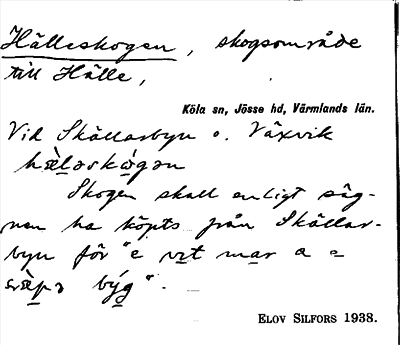 Hälleskogen, skogsområde
till Hälle,
Köla sn, Jösse hd, Värmlands län.
Vid Skällarbyn o. Växvik
hæ̀ləskó̱gən
Skogen skall enligt säg-
nen ha köpts från Skällar-
byn för "e vit mar a e
býg".
ELOV SILFORS 1938.